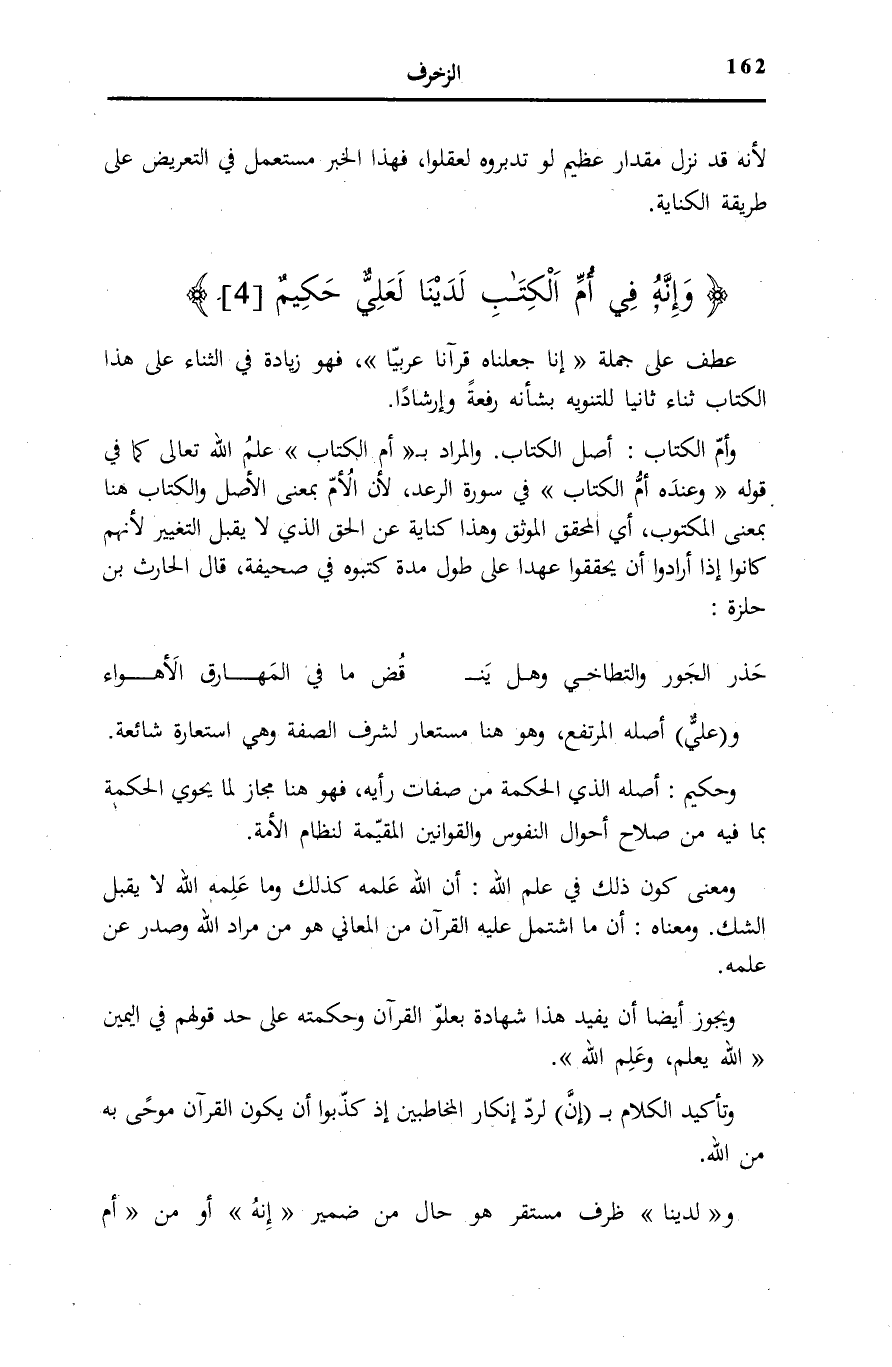 162
الزخرف
لأنه قد نزل مقدار عظيم لو تدبروه لعقلوا، فهذا الخبر مستعمل في التعريض على
طريقة الكناية.
﴿ وَإِنَّهُۥ فِي أُمِّ اَلْكِتَـٰبِ لَدَيْنَا لَعَلِيٌّ حَكِيمٌ [4] ﴾
عطف على جملة « إنا جعلناه قرآنا عربيّا »، فهو زيادة في الثناء على هذا
الكتاب ثناء ثانيا للتنويه بشأنه رفعةً وإرشادًا.
وأمّ الكتاب : أصل الكتاب. والمراد بـ« أم الكتاب » علمُ الله تعالى كما في
قوله « وعندَه أمُّ الكتاب » في سورة الرعد، لأن الُأمّ بمعنى الأصل والكتاب هنا
بمعنى المكتوب، أي المحقق الموثق وهذا كناية عن الحق الذي لا يقبل التغيير لأنهم
كانوا إذا أرادوا أن يحققوا عهدا على طول مدة كتبوه في صحيفة، قال الحارث بن
حلزة :
حَذر الجَور والتطاخي وهل يَنـ قُض ما في المَهـارق الَأهـواء
و(عليٌّ) أصله المرتفع، وهو هنا مستعار لشرف الصفة وهي استعارة شائعة.
وحكيم : أصله الذي الحكمة من صفات رأيه، فهو هنا مجاز لما يحوي الحكمة
بما فيه من صلاح أحوال النفوس والقوانين المقيّمة لنظام الأمة.
ومعنى كون ذلك في علم الله : أن الله عَلمه كذلك وما عَلِمه الله لا يقبل
الشك. ومعناه : أن ما اشتمل عليه القرآن من المعاني هو من مراد الله وصدر عن
علمه.
ويجوز أيضا أن يفيد هذا شهادة بعلوّ القرآن وحكمته على حد قولهم في اليمين
« الله يعلم، وعَلِم الله ».
وتأكيد الكلام بـ (إنَّ) لردّ إنكار المخاطبين إذ كذّبوا أن يكون القرآن موحًى به
من الله.
و« لدينا » ظرف مستقر هو حال من ضمير « إنهُ » أو من « أم